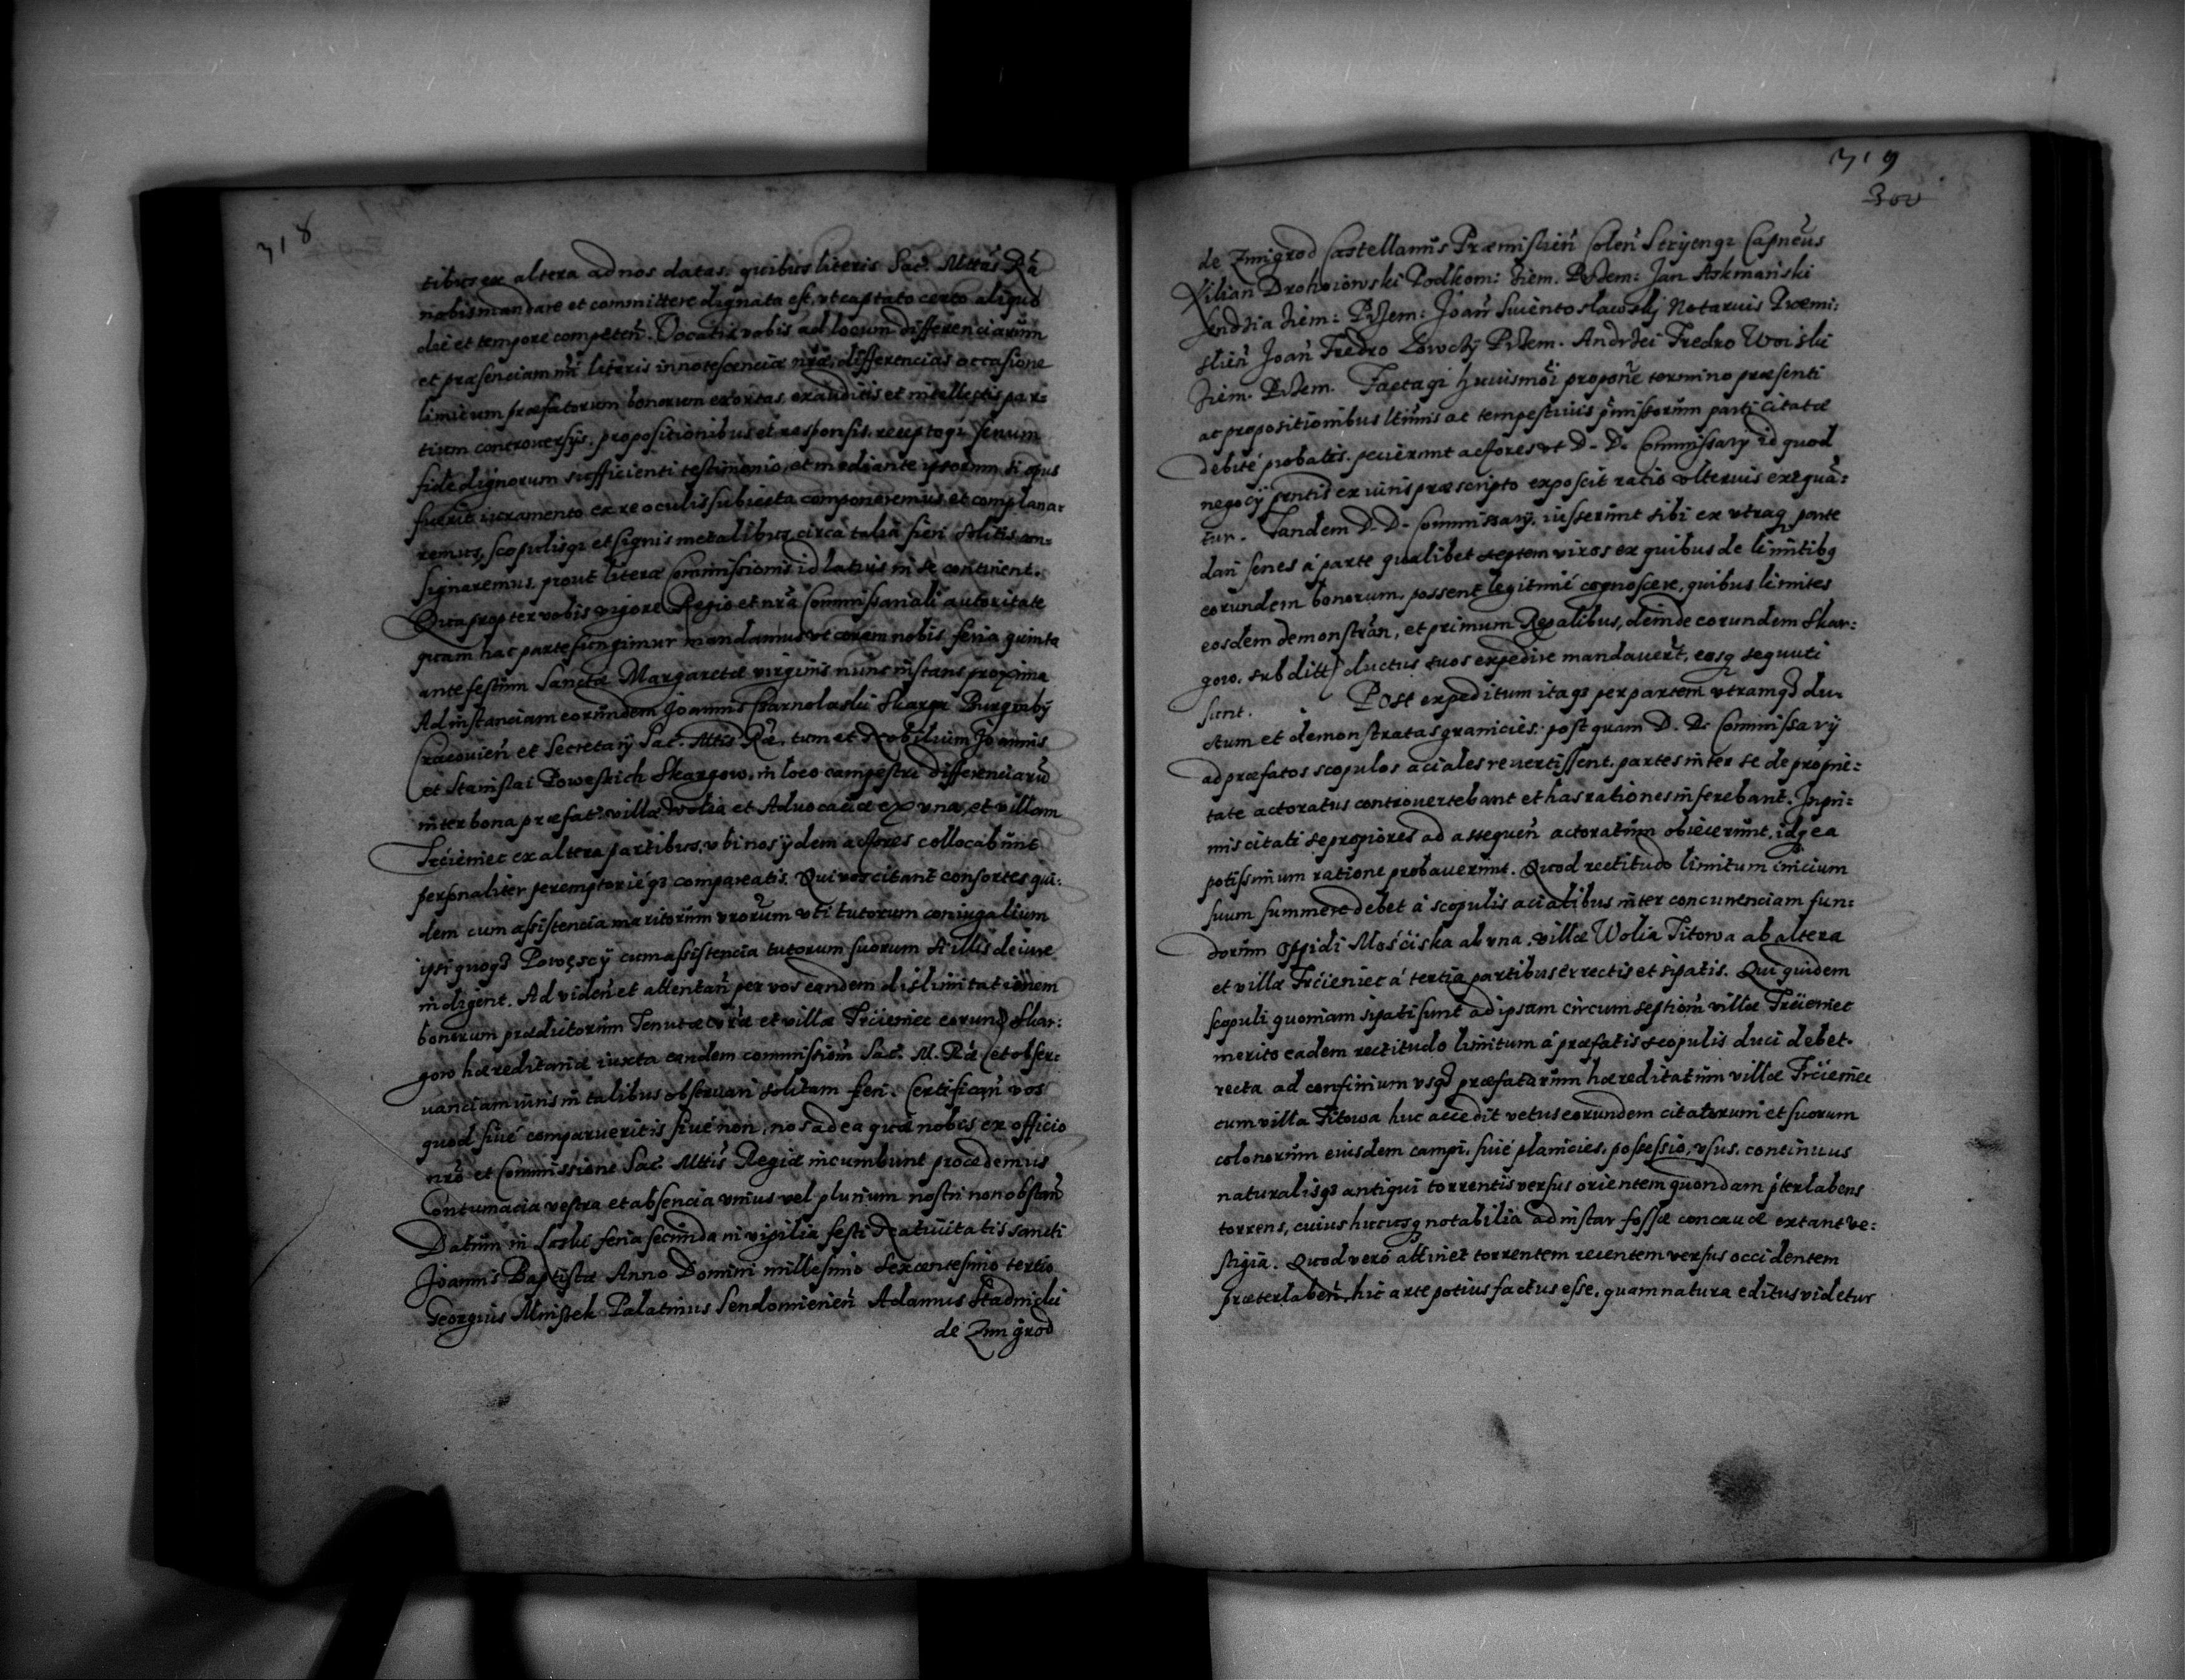 318
tibus ex altera ad nos datas, quibus literis Sac. Mttas Ra
nobis mandare et committere dignata est, vt captato certo aliquo
die et tempore competen. Vocatis vobis ad locum differenciarum
et præsenciam nri literis innotescenciæ nræ, differencias occasione
limitum præfatorum bonorum exortas, exauditis et intellectis par:
tium controuersÿs, propositionibus et responsis, receptoq3 senum
fide dignorum sufficienti testimonio, et mediante ipsorum si opus
fuerit iuramento ex re oculis subiecta componeremus et complana:
remus, scopulisq3 et signis metalibus circa talia fieri solitis con:
signaremus, prout literæ Commissionis id latius in se continent.
Quapropter vobis vigore Regio et nra Commissariali autoritate
quam hac parte fungimur mandamus vt coram nobis feria quinta
ante festum Sanctæ Margaretæ virginis nunc instans proxima
Ad instanciam eorundem Joannis Czarnolaski Skarga Burgrabÿ
Cracouien et Secretarÿ Sac. Mttis Ræ, tum et Nobilium Joannis
et Stanislai Poweskich Skargow, in loco campestri differenciaru
inter bona præfat. villæ Wolia et Aduocatiæ ex vna, et villam
Trcieniec ex altera partibus, vbi nos ÿdem actores collocabunt
personaliter peremptorieq3 compareatis. Qui vos citant consortes qui:
dem cum assistencia maritorum vrorum vti tutorum coniugalium
ipsi quoq3 Powęscÿ cum assistencia tutorum suorum si illis de iure
indigent. Ad viden et attentan per vos eandem dislimitationem
bonorum prædictorum Tenutæ vræ et villæ Trcieniec eorund Skar:
gow hæreditariæ iuxta eandem commission Sac. M. Ræ et obser:
uanciam iuris in talibus obseruari solitam fieri. Certifican vos
quod siué comparueritis siué non, nos ad ea quæ nobis ex officio
nro et Commissione Sac. Mttis Regiæ incumbunt procedemus
Contumacia vestra et absencia vnius vel plurium nostri non obstan
Datum in Laszki feria secunda in vigilia festi Natiuitatis sancti
Joannis Baptistæ Anno Domini millesimo sexcentesimo tertio
Georgius Mnissek Palatinus Sendomirien Adamus Stadnicki
de Zmigrod
319
300
de Zmigrod Castellanus Præmislien Colen Stryenq3 Capneus
Kilian Drohoiowski Podkom: Ziem. Przem: Jan Askmanski
Sendzia Ziem: Przem: Joan Swientoslawskj Notarius Præmi:
slien Joan Fredro Lowcży Przem. Andrzei Fredro Woiski
Ziem. Przem. Factaq3 huiusmoi propone termino præsenti
ac propositionibus ltimis ac tempestiuis pmissorum parti citatæ
debité probatis. pecierunt actores vt D. D. Commissary id quod
negocÿ pntis ex iuris præscripto exposcit ratio vlterius exequa:
tur. Tandem D. D. Commissarÿ, iusserunt sibi ex vtraq3 parte
dari senes á parte qualibet septem viros ex quibus de limitibq
eorundem bonorum, possent legitimé cognoscere, quibus limites
eosdem demonstran, et primum Regalibus, deinde eorundem Skar:
gow, subditt ductus suos expedire mandauert, eosq3 sequuti
sunt. Post expeditum itaq3 per partem vtramq3 du:
ctum et demonstratas granicies: post quam D. D. Commissarÿ
ad præfatos scopulos aciales reuertissent, partes inter se de proprie:
tate actoratus controuertebant et has rationes inferebant. Inpri:
mis citati se propiores ad assequen actoratum obiecerunt, idq3 ea
potissimum ratione probauerunt. Quod rectitudo limitum inicium
suum summere debet á scopulis acialibus inter concurrenciam fun:
dorum Oppidi Mosciska ab vna, villæ Wolia Titowa ab altera
et villæ Trcieniec á tertia partibus errectis et sipatis. Qui quidem
scopuli quoniam sipati sunt ad ipsam circumseption villæ Trcieniec
merito eadem rectitudo limitum á præfatis scopulis duci debet
recta ad confinium vsq3 præfatarum hæreditatum villæ Trcieniec
cum villa Titowa huc accedit vetus eorundem citatorum et suorum
colonorum eiusdem campi, siué planicies, possessio, vsus, continuus
naturalisq3 antiqui torrentis versus orientem quondam pterlabens
torrens, cuius hucusq3 notabilia ad instar fossæ concauæ extant ve:
stigia. Quod veró attinet torrentem recentem versus occidentem
præterlaben, hic arte potius factus esse, quam natura editus videtur